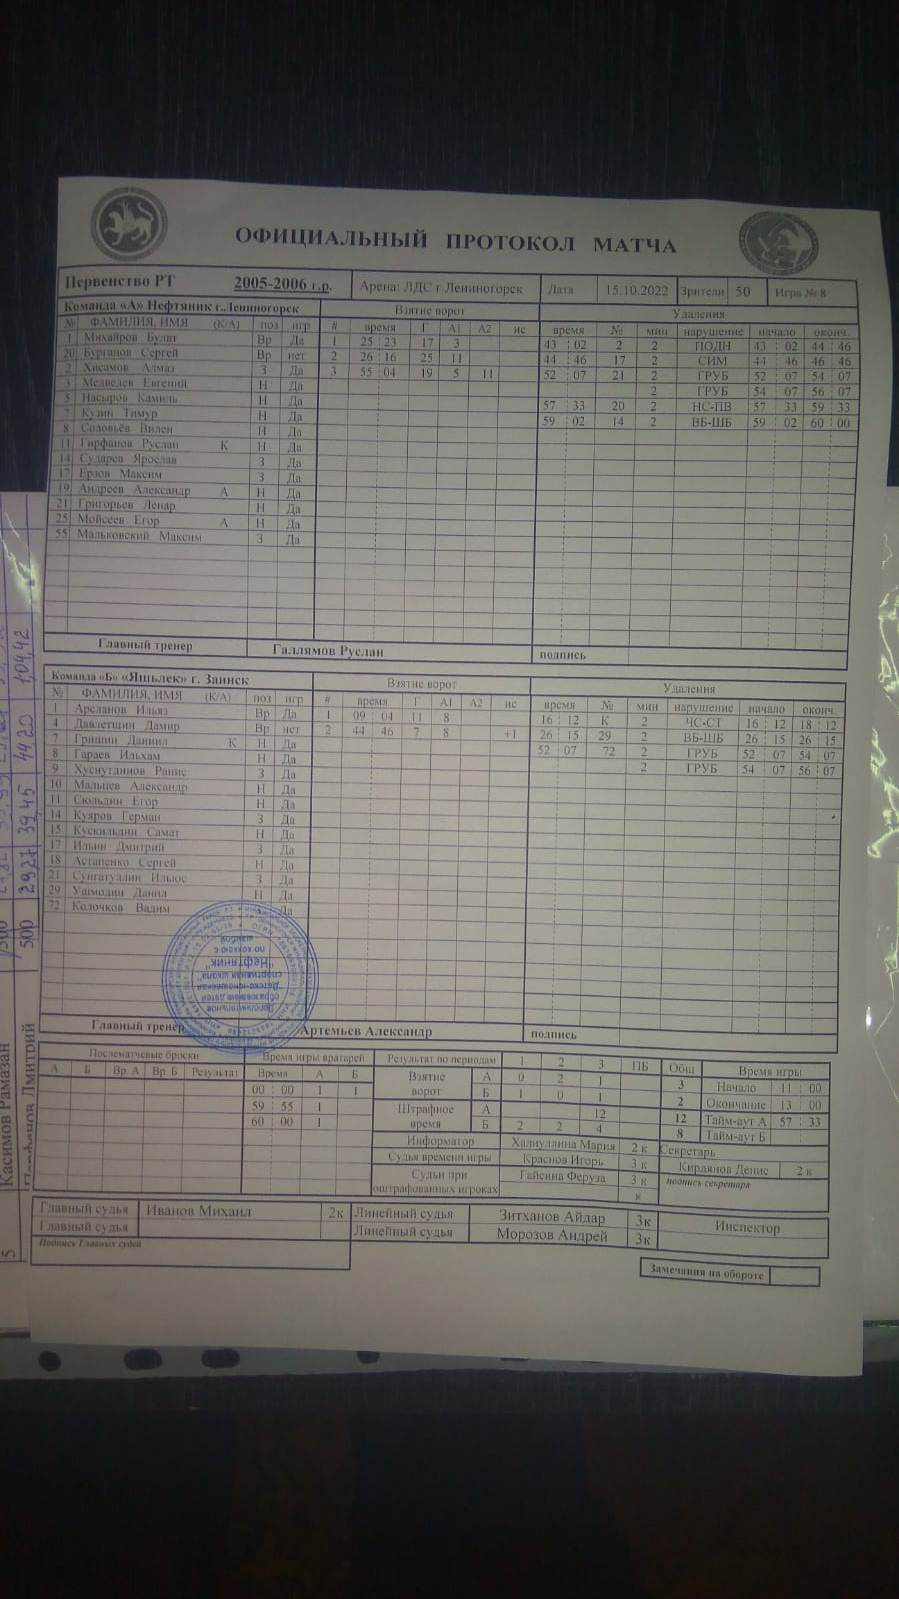 ОФИЦИАЛЬНЫЙ ПРОТОКОЛ МАТЧА
Первенство РТ 2005-2006 г.р. Арена: ЛДС г Лениногорск Дата 15.10.2022 Зрители 50 Игра № 8
Команда «А» Нефтяник г.Лениногорск Взятие ворот Удаления
№ ФАМИЛИЯ, ИМЯ (К/А) поз игр # время Г А1 А2 ис время № мин нарушение начало оконч.
1 Михайров Булат Вр Да 1 25 : 23 17 3 43 : 02 2 2 ПОДН 43 : 02 44 : 46
20 Бурганов Сергей Вр нет 2 26 : 16 25 11 44 : 46 17 2 СИМ 44 : 46 46 : 46
2 Хисамов Алмаз З Да 3 55 : 04 19 5 11 52 : 07 21 2 ГРУБ 52 : 07 54 : 07
3 Медведев Евгений Н Да 2 ГРУБ 54 : 07 56 : 07
5 Насыров Камиль Н Да 57 : 33 20 2 НС-ПВ 57 : 33 59 : 33
7 Кузин Тимур Н Да 59 : 02 14 2 ВБ-ШБ 59 : 02 60 : 00
8 Соловьёв Вилен Н Да
11 Гирфанов Руслан К Н Да
14 Сударев Ярослав З Да
17 Ерзов Максим З Да
19 Андреев Александр А Н Да
21 Григорьев Ленар Н Да
25 Мойсеев Егор А Н Да
55 Мальковский Максим З Да
Главный тренер Галлямов Руслан подпись
Команда «Б» «Яшьлек» г. Заинск Взятие ворот Удаления
№ ФАМИЛИЯ, ИМЯ (К/А) поз игр # время Г А1 А2 ис время № мин нарушение начало оконч.
1 Арсланов Ильяз Вр Да 1 09 : 04 11 8 16 : 12 К 2 ЧС-СТ 16 : 12 18 : 12
4 Давлетшин Дамир Вр нет 2 44 : 46 7 8 +1 26 : 15 29 2 ВБ-ШБ 26 : 15 26 : 15
7 Гришин Даниил К Н Да 52 : 07 72 2 ГРУБ 52 : 07 54 : 07
8 Гараев Ильхам Н Да 2 ГРУБ 54 : 07 56 : 07
9 Хуснутдинов Ранис З Да
10 Мальцев Александр Н Да
11 Сюльдин Егор Н Да
14 Куяров Герман З Да
15 Кускильдин Самат Н Да
17 Ильин Дмитрий З Да
18 Астапенко Сергей Н Да
21 Сунгатуллин Ильюс З Да
29 Данил Н Да
72 Колочков Вадим Да
Дополнительное образование детей
Детско-юношеская спортивная школа
"Нефтяник"
по хоккею с шайбой
Главный тренер Артемьев Александр подпись
Послематчевые броски Время игры вратарей Результат по периодам 1 2 3 ПБ Общ Время игры
А Б Вр. А Вр. Б Результат Время А Б Взятие ворот А 0 2 1 3 Начало 11 : 00
00 : 00 1 1 Б 1 0 1 2 Окончание 13 : 00
59 : 55 1 Штрафное время А 12 12 Тайм-аут А 57 : 33
60 : 00 1 Б 2 2 4 8 Тайм-аут Б
Информатор Халиуллина Мария 2 к Секретарь
Судья времени игры Краснов Игорь 3 к Кирдянов Денис 2 к
Судьи при оштрафованных игроках Гайсина Феруза 3 к подпись секретаря
к
Главный судья Иванов Михаил 2к Линейный судья Зитханов Айдар 3к Инспектор
Главный судья Линейный судья Морозов Андрей 3к
Подпись Главных судей
Замечания на обороте
5 Касимов Рамазан
Дмитрий 500 29,27 39,45 49,20 1,04,42